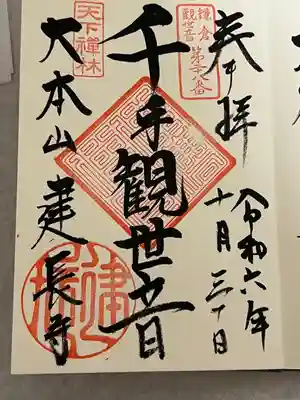 奉拝
令和六年
十月三十日
鎌倉
観世音
第廿八番
千手観世音
天下禅林
大本山建長寺